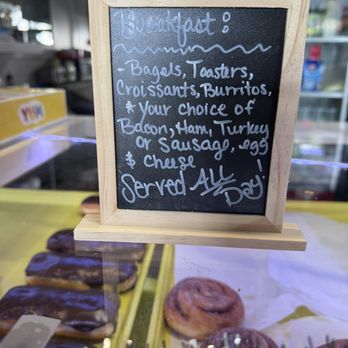 Breakfast:
- Bagels, Toasters,
Croissants, Burritos,
* Your choice of
Bacon, Ham, Turkey
or Sausage, egg
& cheese
Served All
Day!
YUM